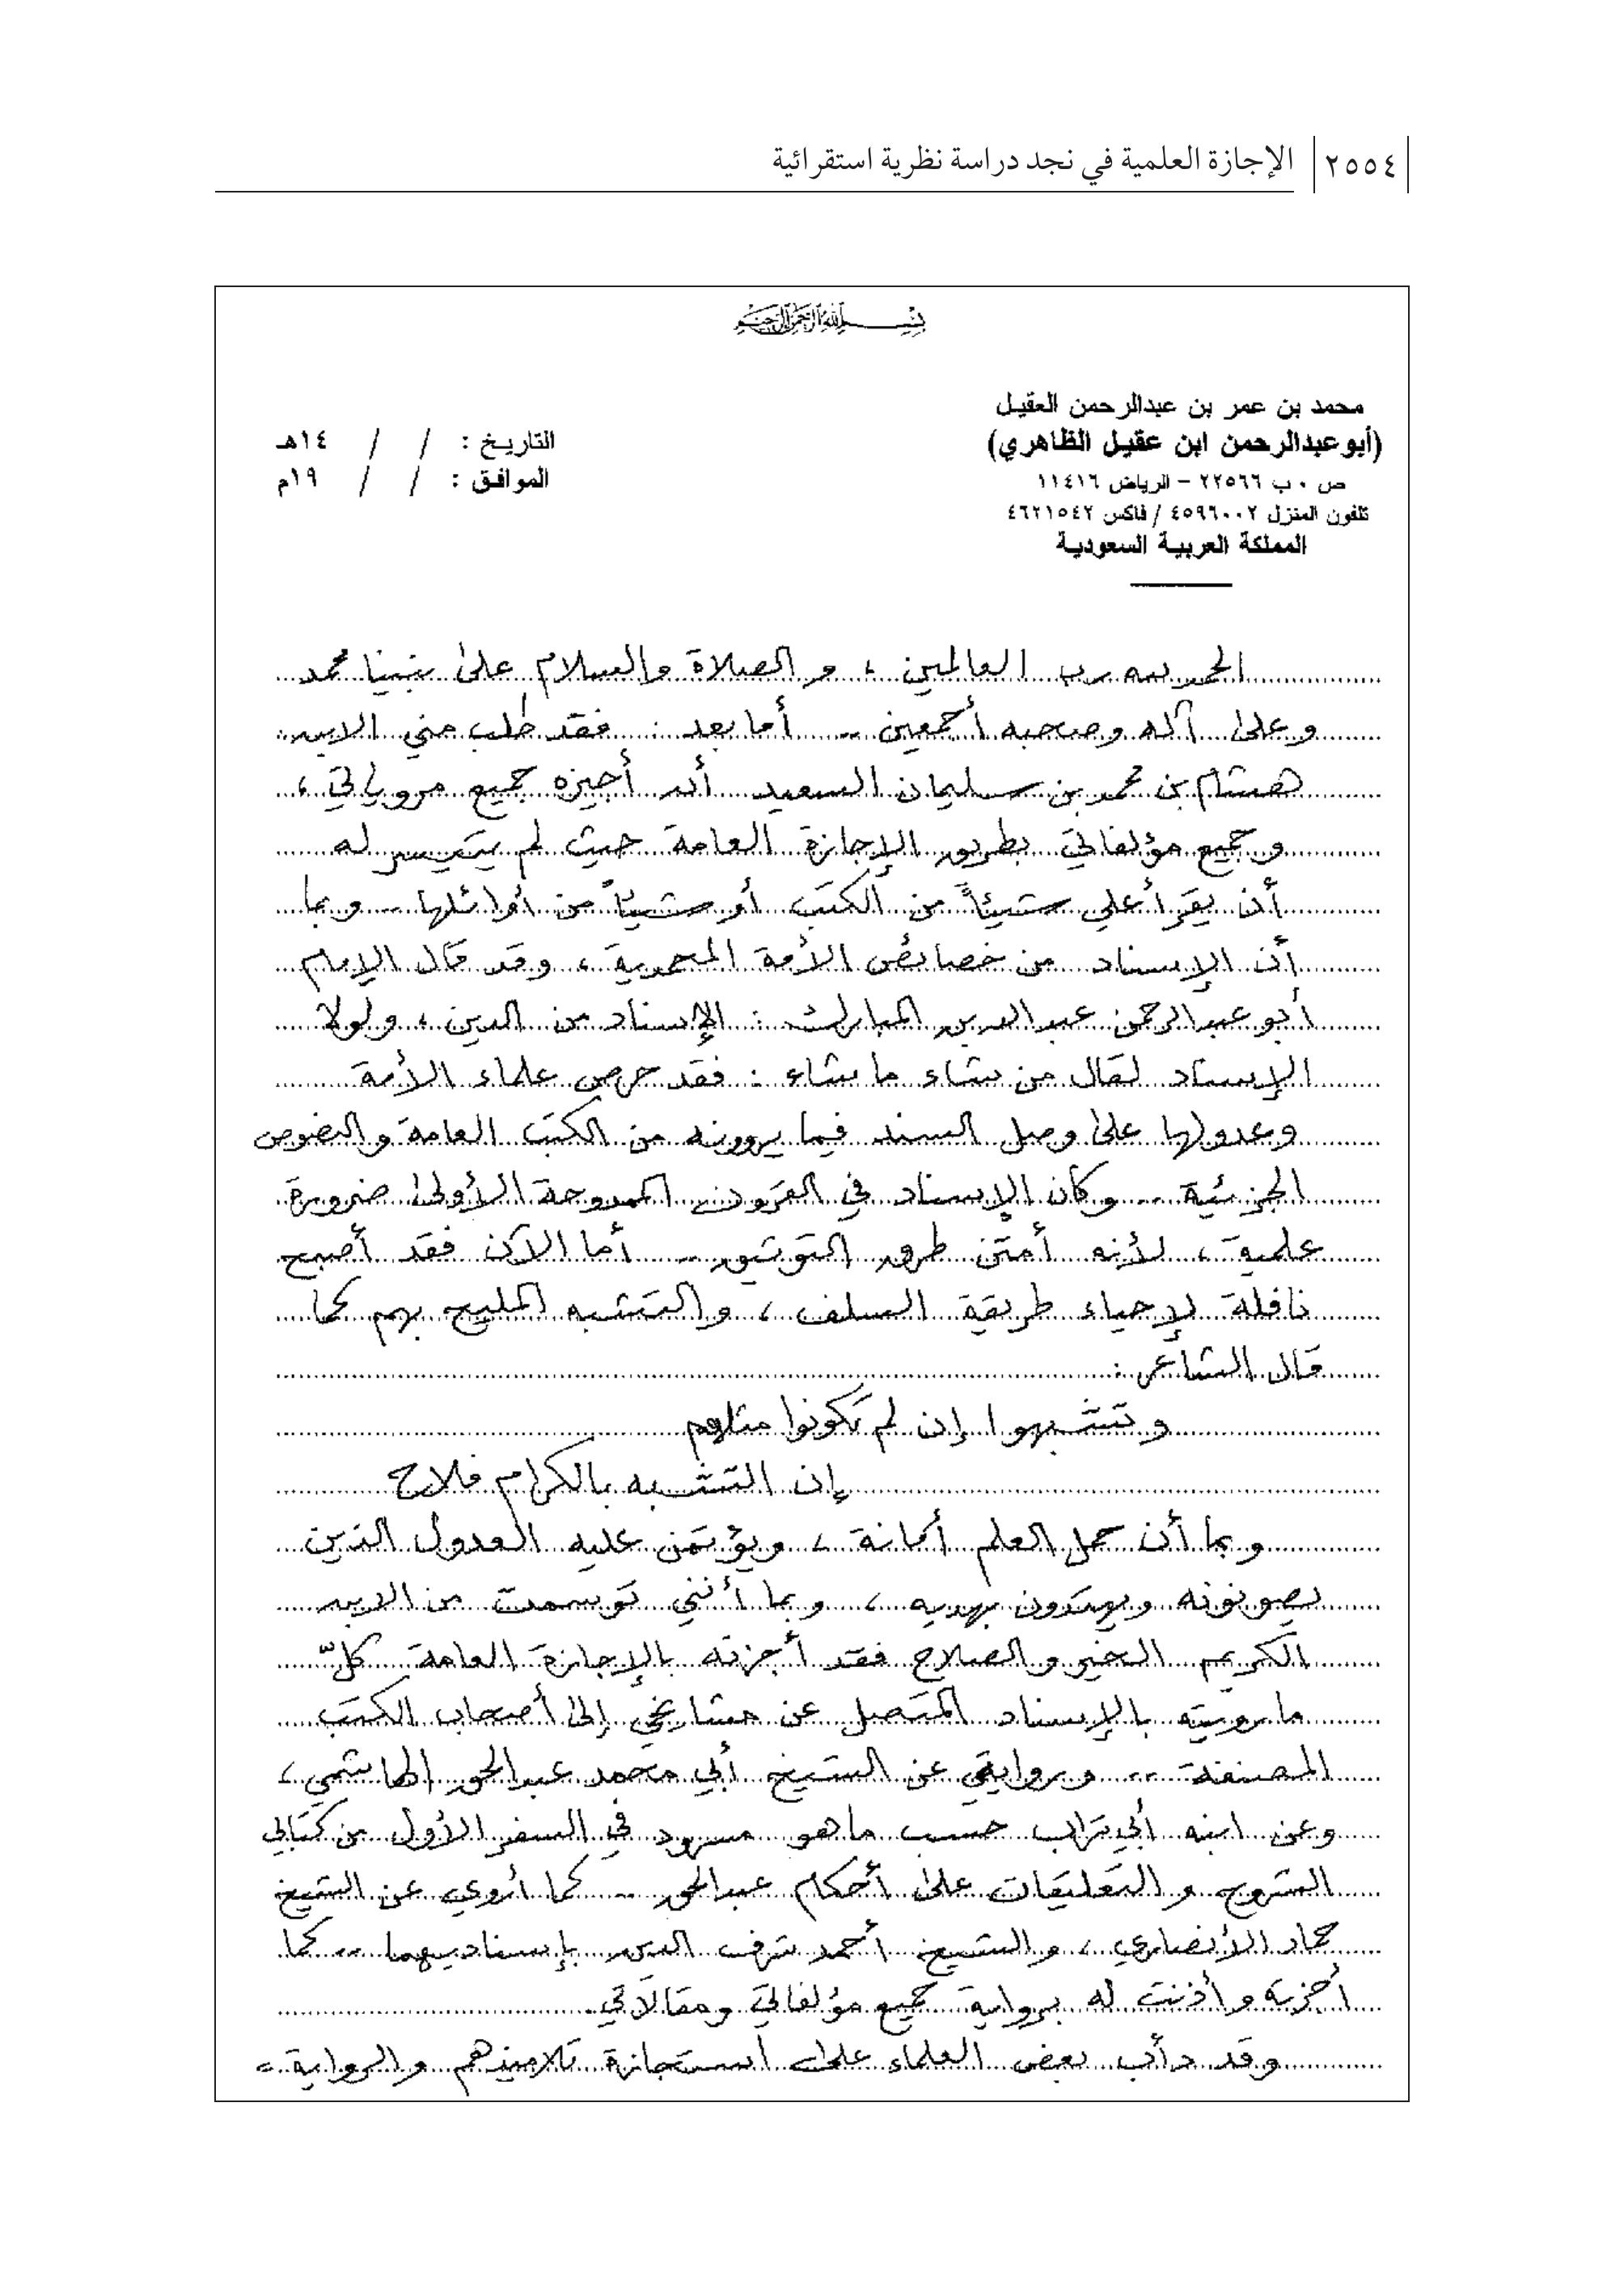 ٢٥٥٤ الإجازة العلمية في نجد دراسة نظرية استقرائية
بسم الله الرحمن الرحيم
محمد بن عمر بن عبدالرحمن العقيل
(أبو عبدالرحمن ابن عقيل الظاهري)
ص ٠ ب ٢٢٥٦٦ - الرياض ١١٤١٦
تلفون المنزل ٤٥٩٦٠٠٢ / فاكس ٤٦٢١٥٤٢
المملكة العربية السعودية
التاريخ : / / ١٤هـ
الموافق : / / ١٩م
الحمد لله رب العالمين ، و الصلاة والسلام على نبينا محمد
وعلى آله وصحبه أجمعين .. أما بعد : فقد طلب مني الابن
هشام بن محمد بن سليمان السعيد أن أجيزه جميع مروياتي ،
وجميع مؤلفاتي بطريق الإجازة العامة حيث لم يتيسر له
أن يقرأ علي شيئاً من الكتب أو شيئاً من أوائلها .. وبما
أن الإسناد من خصائص الأمة المحمدية ، وقد قال الإمام
أبو عبدالرحمن عبدالله بن المبارك : الإسناد من الدين ، ولولا
الإسناد لقال من شاء ما شاء : فقد حرص علماء الأمة
وعدولها على وصل السند فيما يروونه من الكتب العامة والنصوص
الجزئية .. وكان الإسناد في القرون الممدوحة الأولى ضرورة
علمية ، لأنه أمتن طرق التوثيق .. أما الآن فقد أصبح
نافلة لإحياء طريقة السلف ، والتشبه المليح بهم كما
قال الشاعر :
وتشبهوا إن لم تكونوا مثلهم
إن التشبه بالكرام فلاح
وبما أن حمل العلم أمانة ، ويؤتمن عليه العدول الذين
يصونونه ويهتدون بهديه ، وبما أنني توسمت من الابن
الكريم الخير والصلاح فقد أجزته بالإجازة العامة كلّ
ما رويته بالإسناد المتصل عن مشايخي إلى أصحاب الكتب
المصنفة .. وبروايتي عن الشيخ أبي محمد عبدالحق الهاشمي ،
وعن ابنه أبي تراب حسب ما هو مسرود في السفر الأول من كتابي
الشروح والتعليقات على أحكام عبدالحق .. كما أروي عن الشيخ
حماد الأنصاري ، والشيخ أحمد شرف الدين بإسناديهما .. كما
أجزته وأذنت له برواية جميع مؤلفاتي ومقالاتي.
وقد دأب بعض العلماء على استجازة تلاميذهم والرواية =